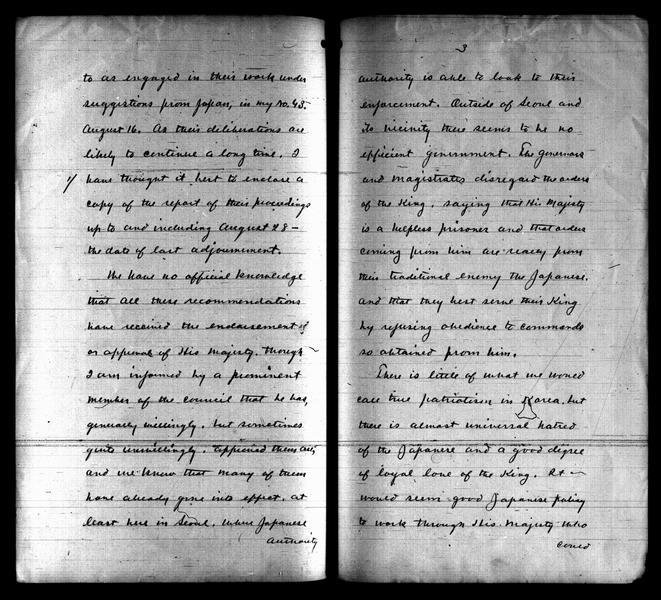 to as engaged in their work under
suggestions from Japan, in my No. 48,
August 16. As their deliberations are
likely to continue a long time, I
1/ have thought it best to enclose a
copy of the report of their proceedings
up to and including August 28 –
the date of last adjournment.
We have no official knowledge
that all these recommendations
have received the endorsement of
or approval of His Majesty, though
I am informed by a prominent
member of the council that he has,
generally willingly, but sometimes
quite unwillingly, approved them all,
and we know that many of them
have already gone into effect, at
least here in Seoul, where Japanese
authority
3
authority is able to look to their
enforcement. Outside of Seoul and
its vicinity there seems to be no
efficient government. The governors
and magistrates disregard the orders
of the King, saying that His Majesty
is a helpless prisoner and that orders
coming from him are really from
their traditional enemy the Japanese,
and that they best serve their King
by refusing obedience to commands
so obtained from him.
There is little of what we would
call true patriotism in Korea, but
there is almost universal hatred
of the Japanese and a good degree
of loyal love of the King. It
would seem good Japanese policy
to work through His Majesty who
could